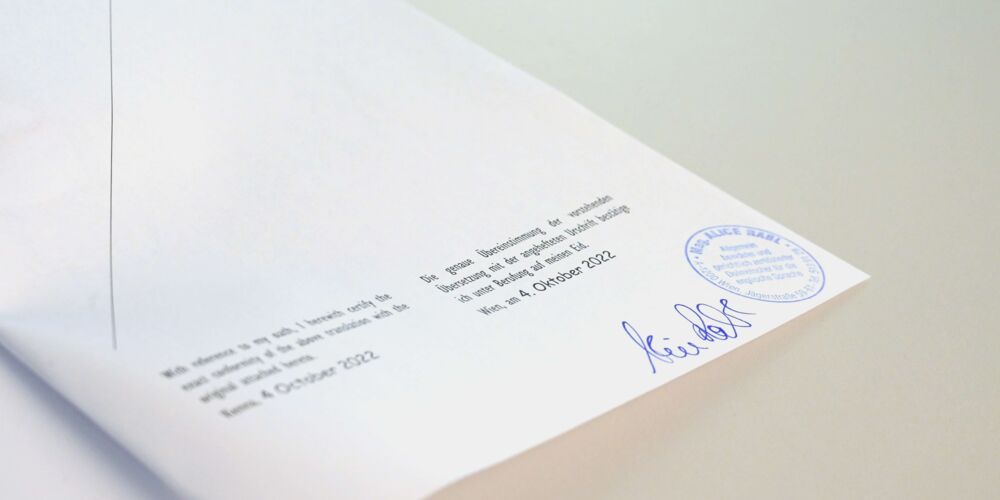 With reference to my oath, I herewith certify the
exact conformity of the above translation with the
original attached hereto.
Vienna, 4 October 2022
Die genaue Übereinstimmung der vorstehenden
Übersetzung mit der angehefteten Urschrift bestätige
ich unter Berufung auf meinen Eid.
Wien, am 4. Oktober 2022
Mag. ALICE RABL
Allgemein
beeideter und
gerichtlich zertifizierter
Dolmetscher für die
englische Sprache
1200 Wien, Jägerstraße